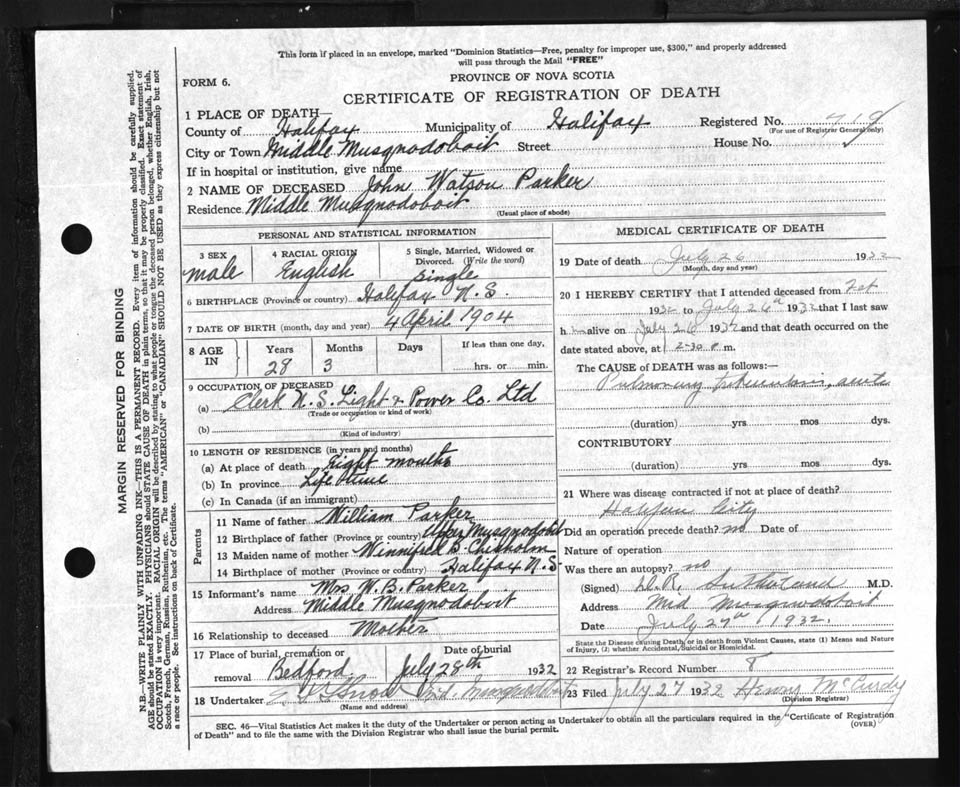 This form if placed in an envelope, marked "Dominion Statistics—Free, penalty for improper use, $300," and properly addressed
will pass through the Mail "FREE"
FORM 6.
PROVINCE OF NOVA SCOTIA
CERTIFICATE OF REGISTRATION OF DEATH
1 PLACE OF DEATH
County of Halifax Municipality of Halifax Registered No. 719
(For use of Registrar General only)
City or Town Middle Musqnodoboit Street House No.
If in hospital or institution, give name
2 NAME OF DECEASED John Watson Parker
Residence Middle Musqnodoboit
(Usual place of abode)
PERSONAL AND STATISTICAL INFORMATION
3 SEX 4 RACIAL ORIGIN 5 Single, Married, Widowed or
Divorced. (Write the word)
male English Single
6 BIRTHPLACE (Province or country) Halifax N.S.
7 DATE OF BIRTH (month, day and year) 4 April 1904
8 AGE IN Years Months Days If less than one day,
28 3 hrs. or min.
9 OCCUPATION OF DECEASED
(a) Clerk N.S. Light & Power Co. Ltd
(Trade or occupation or kind of work)
(b)
(Kind of industry)
10 LENGTH OF RESIDENCE (in years and months)
(a) At place of death Eight months
(b) In province Life time
(c) In Canada (if an immigrant)
Parents
11 Name of father William Parker
12 Birthplace of father (Province or country) Upper Musqnodoboit
13 Maiden name of mother Winnifred B. Chisholm
14 Birthplace of mother (Province or country) Halifax N.S
15 Informant's name Mrs W.B. Parker
Address Middle Musqnodoboit
16 Relationship to deceased Mother
17 Place of burial, cremation or Date of burial
removal Bedford July 28th 1932
18 Undertaker Snow Mid. Musqnodoboit
(Name and address)
MEDICAL CERTIFICATE OF DEATH
19 Date of death July 26 1932
(Month, day and year)
20 I HEREBY CERTIFY that I attended deceased from
1932 to July 26th 1932 that I last saw
h alive on July 26 1932 and that death occurred on
date stated above, at 2-30 P m.
The CAUSE of DEATH was as follows:—
Pulmonary tuberculosis, acute
(duration) yrs mos dys.
CONTRIBUTORY
(duration) yrs. mos. dys.
21 Where was disease contracted if not at place of death?
Halifax City
Did an operation precede death? no Date of
Nature of operation
Was there an autopsy? no
(Signed) Sutherland M.D.
Address Mid Musqnodoboit
Date July 27th 1932.
State the Disease causing Death, or in death from Violent Causes, state (1) Means and Nature
of Injury, (2) whether Accidental, Suicidal or Homicidal.
22 Registrar's Record Number 8
23 Filed July 27 1932 Henry McCurdy
(Division Registrar)
SEC. 46—Vital Statistics Act makes it the duty of the Undertaker or person acting as Undertaker to obtain all the particulars required in the "Certificate of Registration
of Death" and to file the same with the Division Registrar who shall issue the burial permit. (OVER)
MARGIN RESERVED FOR BINDING
N.B.—WRITE PLAINLY WITH UNFADING INK—THIS IS A PERMANENT RECORD. Every item of information should be carefully supplied.
AGE should be stated EXACTLY. PHYSICIANS should STATE CAUSE OF DEATH in plain terms, so that it may be properly classified. Exact statement of
OCCUPATION is very important. RACIAL ORIGIN will be described by stating to what people or tongue the deceased person belonged, whether English, Irish,
Scotch, French, German, Russian, Ruthenian, etc. The terms "AMERICAN" or "CANADIAN" SHOULD NOT BE USED as they express citizenship but not
a race or people. See instructions on back of Certificate.